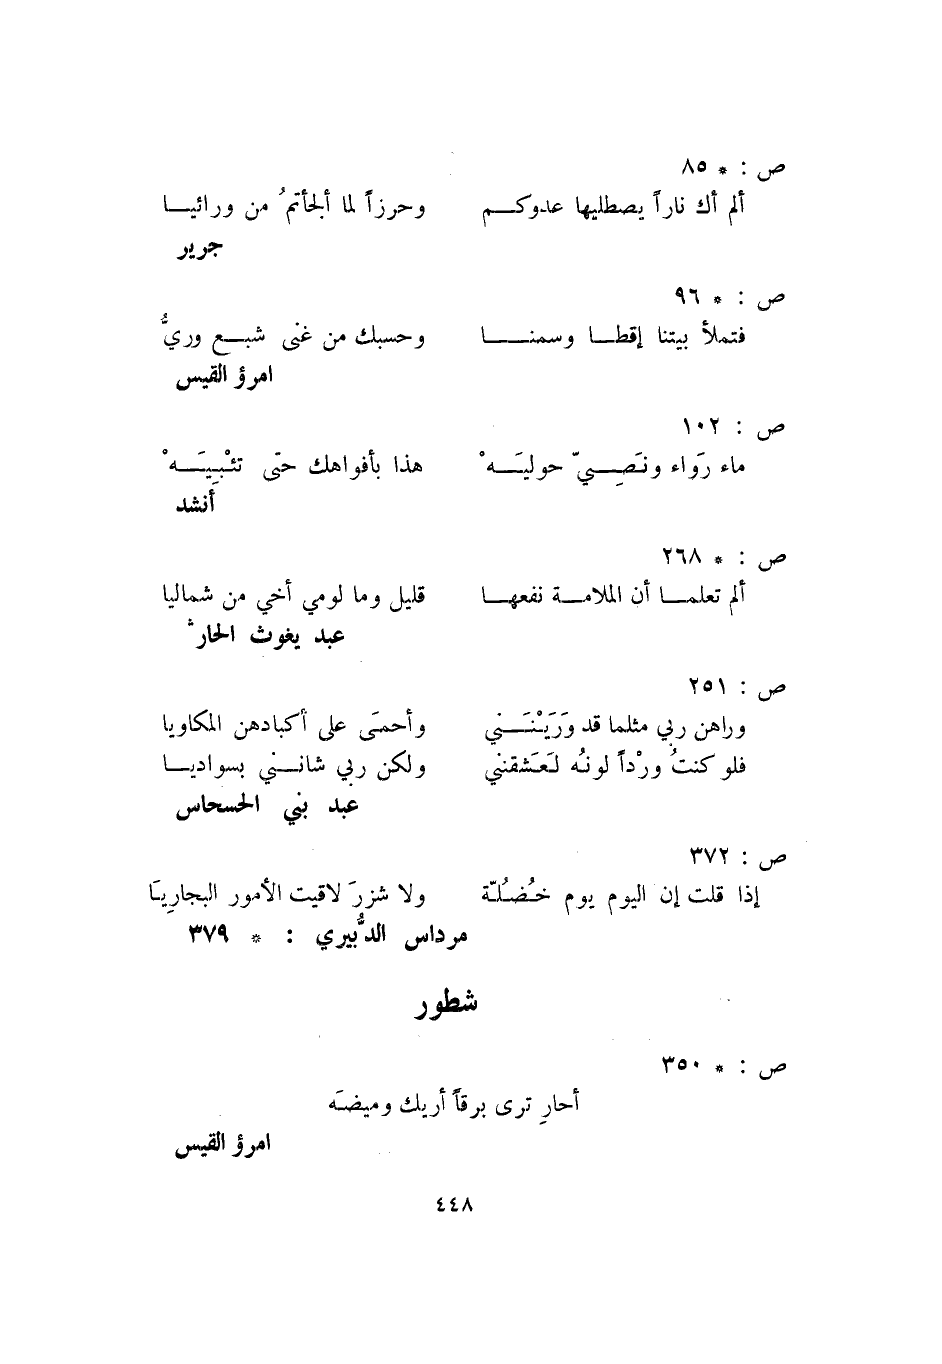 ص : * ٨٥
ألم أك ناراً يصطليها عدوكم وحرزاً لما ألجأتمُ من ورائيا
جرير
ص : * ٩٦
فتملأ بيتنا إقطا وسمنا وحسبك من غنى شبع وريُّ
امرؤ القيس
ص : ١٠٢
ماء رَواء ونَصِيّ حوليَهْ هذا بأفواهك حتّى تئْبِيَهْ
أنشد
ص : * ٢٦٨
ألم تعلما أن الملامة نفعها قليل وما لومي أخي من شماليا
عبد يغوث الحارث
ص : ٢٥١
وراهن ربي مثلما قد وَرَيْنَني وأحمَى على أكبادهن المكاويا
فلو كنتُ ورْداً لونُه لَعَشقنني ولكن ربي شانني بسواديا
عبد بني الحسحاس
ص : ٣٧٢
إذا قلت إن اليوم يوم خُضُلّة ولا شزرَ لاقيت الأمور البجارِيَا
مرداس الدُّبيري : * ٣٧٩
شطور
ص : * ٣٥٠
أحارِ ترى برقاً أريك وميضَه
امرؤ القيس
٤٤٨